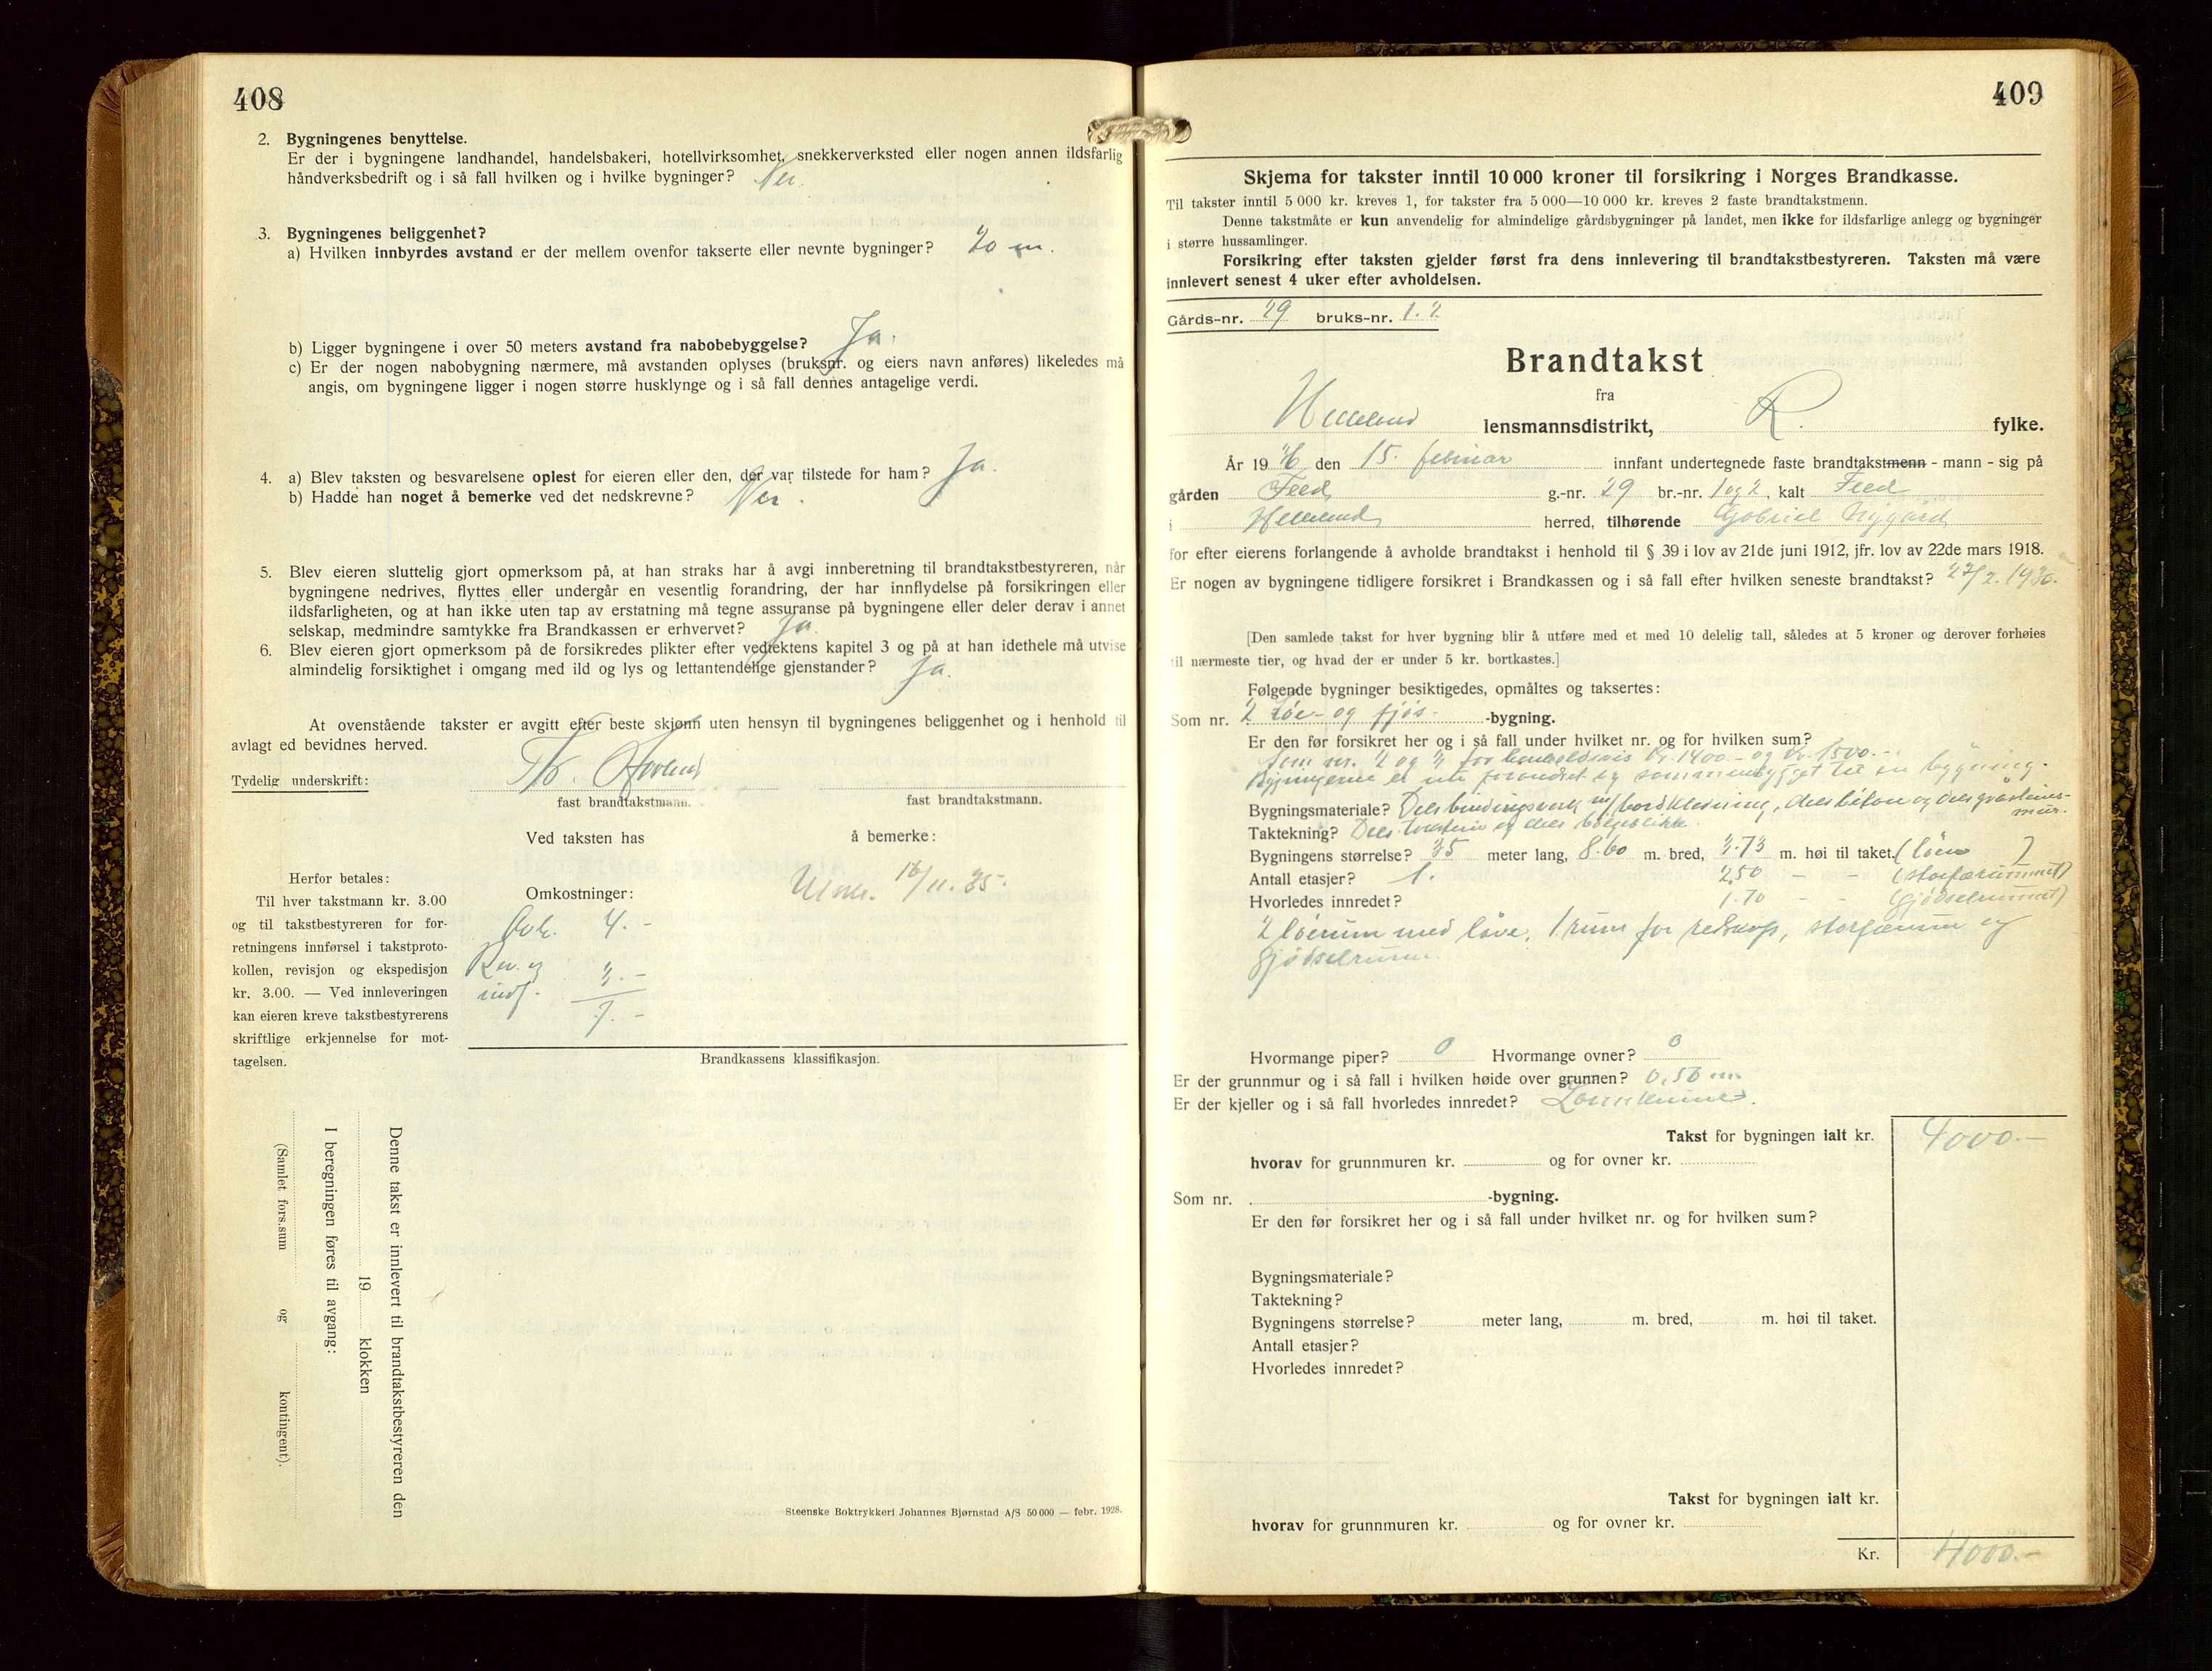 408
2. Bygningenes benyttelse.
Er der i bygningene landhandel, handelsbakeri, hotellvirksomhet, snekkerverksted eller nogen annen ildsfarlig
håndverksbedrift og i så fall hvilken og i hvilke bygninger? Nei.
3. Bygningenes beliggenhet?
a) Hvilken innbyrdes avstand er der mellem ovenfor takserte eller nevnte bygninger? 20 m.
b) Ligger bygningene i over 50 meters avstand fra nabobebyggelse? Ja.
c) Er der nogen nabobygning nærmere, må avstanden oplyses (bruksnr. og eiers navn anføres) likeledes må
angis, om bygningene ligger i nogen større husklynge og i så fall dennes antagelige verdi.
4. a) Blev taksten og besvarelsene oplest for eieren eller den, der var tilstede for ham? Ja.
b) Hadde han noget å bemerke ved det nedskrevne? Nei.
5. Blev eieren sluttelig gjort opmerksom på, at han straks har å avgi innberetning til brandtakstbestyreren, når
bygningene nedrives, flyttes eller undergår en vesentlig forandring, der har innflydelse på forsikringen eller
ildsfarligheten, og at han ikke uten tap av erstatning må tegne assuranse på bygningene eller deler derav i annet
selskap, medmindre samtykke fra Brandkassen er erhvervet? Ja.
6. Blev eieren gjort opmerksom på de forsikredes plikter efter vedtektens kapitel 3 og på at han idethele må utvise
almindelig forsiktighet i omgang med ild og lys og lettantendelige gjenstander? Ja.
At ovenstående takster er avgitt efter beste skjønn uten hensyn til bygningenes beliggenhet og i henhold til
avlagt ed bevidnes herved.
Tydelig underskrift:
fast brandtakstmann. fast brandtakstmann.
Ved taksten has å bemerke:
Herfor betales:
Til hver takstmann kr. 3.00
og til takstbestyreren for for-
retningens innførsel i takstproto-
kollen, revisjon og ekspedisjon
kr. 3.00. — Ved innleveringen
kan eieren kreve takstbestyrerens
skriftlige erkjennelse for mot-
tagelsen.
Omkostninger:
4.-
Rev. og
indf. 3.-
7.-
16/11.35.
Brandkassens klassifikasjon.
Denne takst er innlevert til brandtakstbestyreren den
19 klokken
I beregningen føres til avgang:
(Samlet fors.sum og kontingent).
Steenske Boktrykkeri Johannes Bjørnstad A/S 50 000 — febr. 1928.
409
Skjema for takster inntil 10 000 kroner til forsikring i Norges Brandkasse.
Til takster inntil 5 000 kr. kreves 1, for takster fra 5 000—10 000 kr. kreves 2 faste brandtakstmenn.
Denne takstmåte er kun anvendelig for almindelige gårdsbygninger på landet, men ikke for ildsfarlige anlegg og bygninger
i større hussamlinger.
Forsikring efter taksten gjelder først fra dens innlevering til brandtakstbestyreren. Taksten må være
innlevert senest 4 uker efter avholdelsen.
Gårds-nr. 29 bruks-nr. 1.2
Brandtakst
fra
Helleland lensmannsdistrikt, R. fylke.
År 19 36 den 15. februar innfant undertegnede faste brandtakstmenn - mann - sig på
gården Feed g.-nr. 29 br.-nr. 1 og 2, kalt Feed
i Helleland herred, tilhørende Gabriel Nygård
for efter eierens forlangende å avholde brandtakst i henhold til § 39 i lov av 21de juni 1912, jfr. lov av 22de mars 1918.
Er nogen av bygningene tidligere forsikret i Brandkassen og i så fall efter hvilken seneste brandtakst? 27/2. 1930.
[Den samlede takst for hver bygning blir å utføre med et med 10 delelig tall, således at 5 kroner og derover forhøies
til nærmeste tier, og hvad der er under 5 kr. bortkastes.]
Følgende bygninger besiktigedes, opmåltes og taksertes:
Som nr. 2 Løe- og fjøs- -bygning.
Er den før forsikret her og i så fall under hvilket nr. og for hvilken sum?
Som nr. 2 og 3 for henholdsvis kr. 1400.- og kr. 1500.-
Bygningerne er nu forandret og sammenbygget til en bygning.
Bygningsmateriale? Dels bindingsverk m/bordklædning, dels beton og dels gråsteins-
mur.
Taktekning? Dels taksten og dels bølgeblikk.
Bygningens størrelse? 35 meter lang, 8.60 m. bred, 3.73 m. høi til taket. (løen)
Antall etasjer? 1. 2.50 - - (storfærummet)
Hvorledes innredet? 1.70 - - (gjødselrummet)
2 løerum med låve, 1 rum for redskap, storfærum og
gjødselrum.
Hvormange piper? 0 Hvormange ovner? 0
Er der grunnmur og i så fall i hvilken høide over grunnen? 0,50 m
Er der kjeller og i så fall hvorledes innredet?
Takst for bygningen ialt kr. 4000.-
hvorav for grunnmuren kr. og for ovner kr.
Som nr. -bygning.
Er den før forsikret her og i så fall under hvilket nr. og for hvilken sum?
Bygningsmateriale?
Taktekning?
Bygningens størrelse? meter lang, m. bred, m. høi til taket.
Antall etasjer?
Hvorledes innredet?
Takst for bygningen ialt kr.
hvorav for grunnmuren kr. og for ovner kr.
Kr. 4000.-